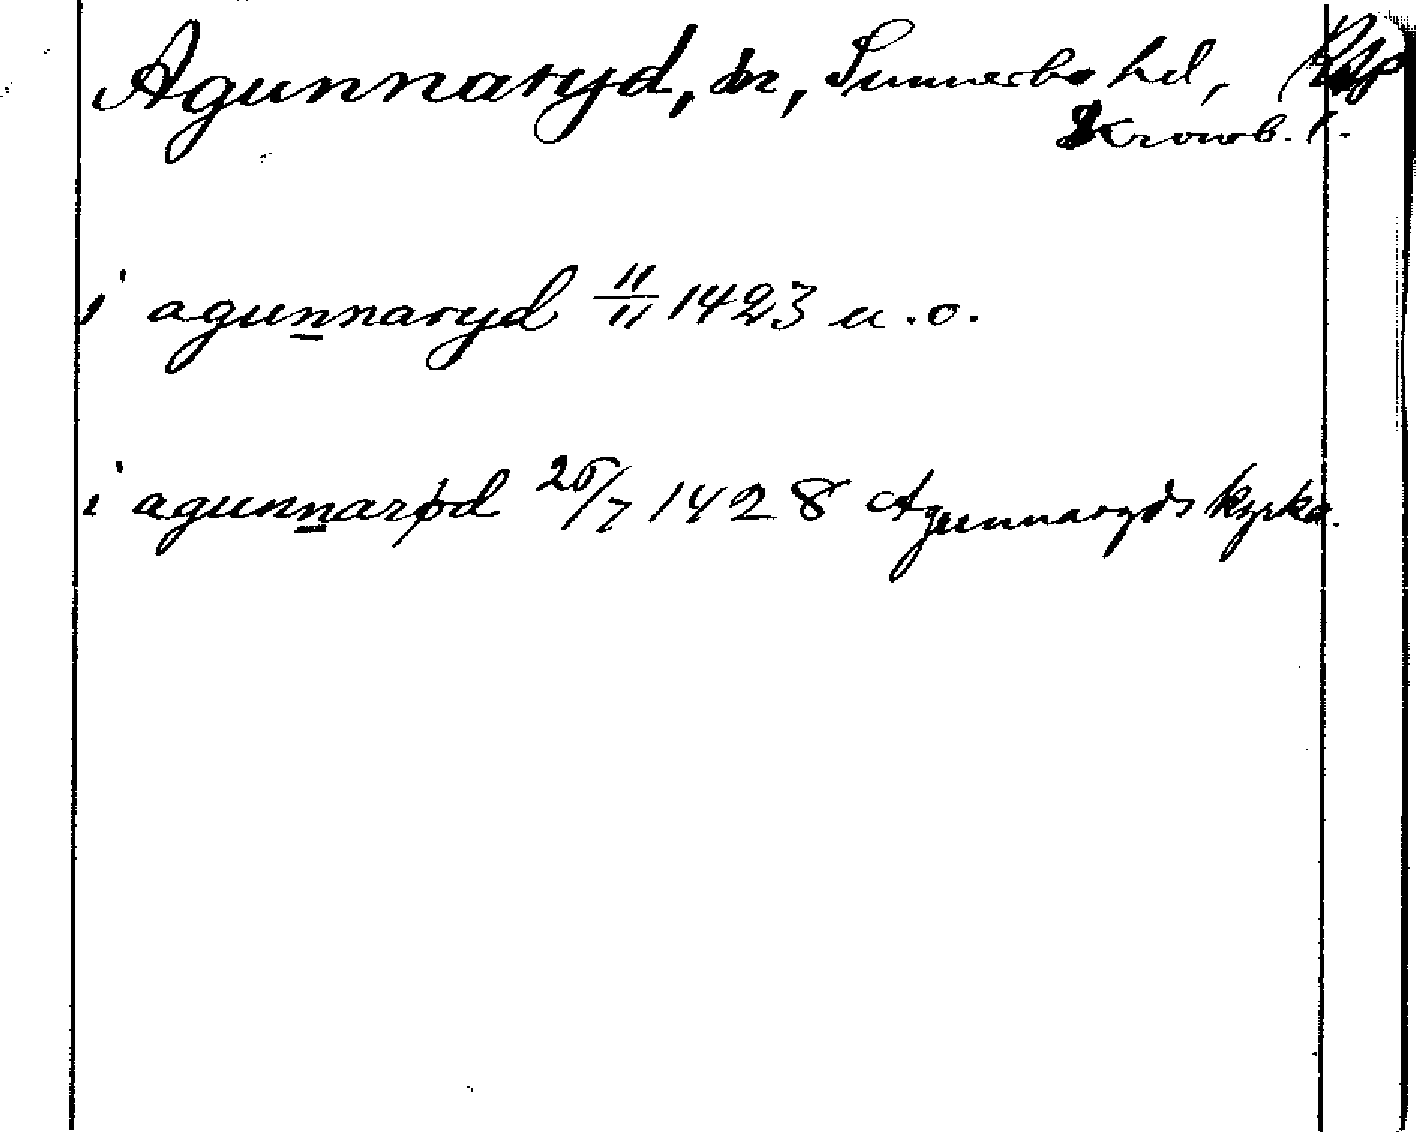 Agunnaryd, sn, Sunnerbo hd,
Kronob. l.
i agunnaryd 11/11 1423 u.o.
i agunnarød 25/7 1428 Agunnaryds kyrka.